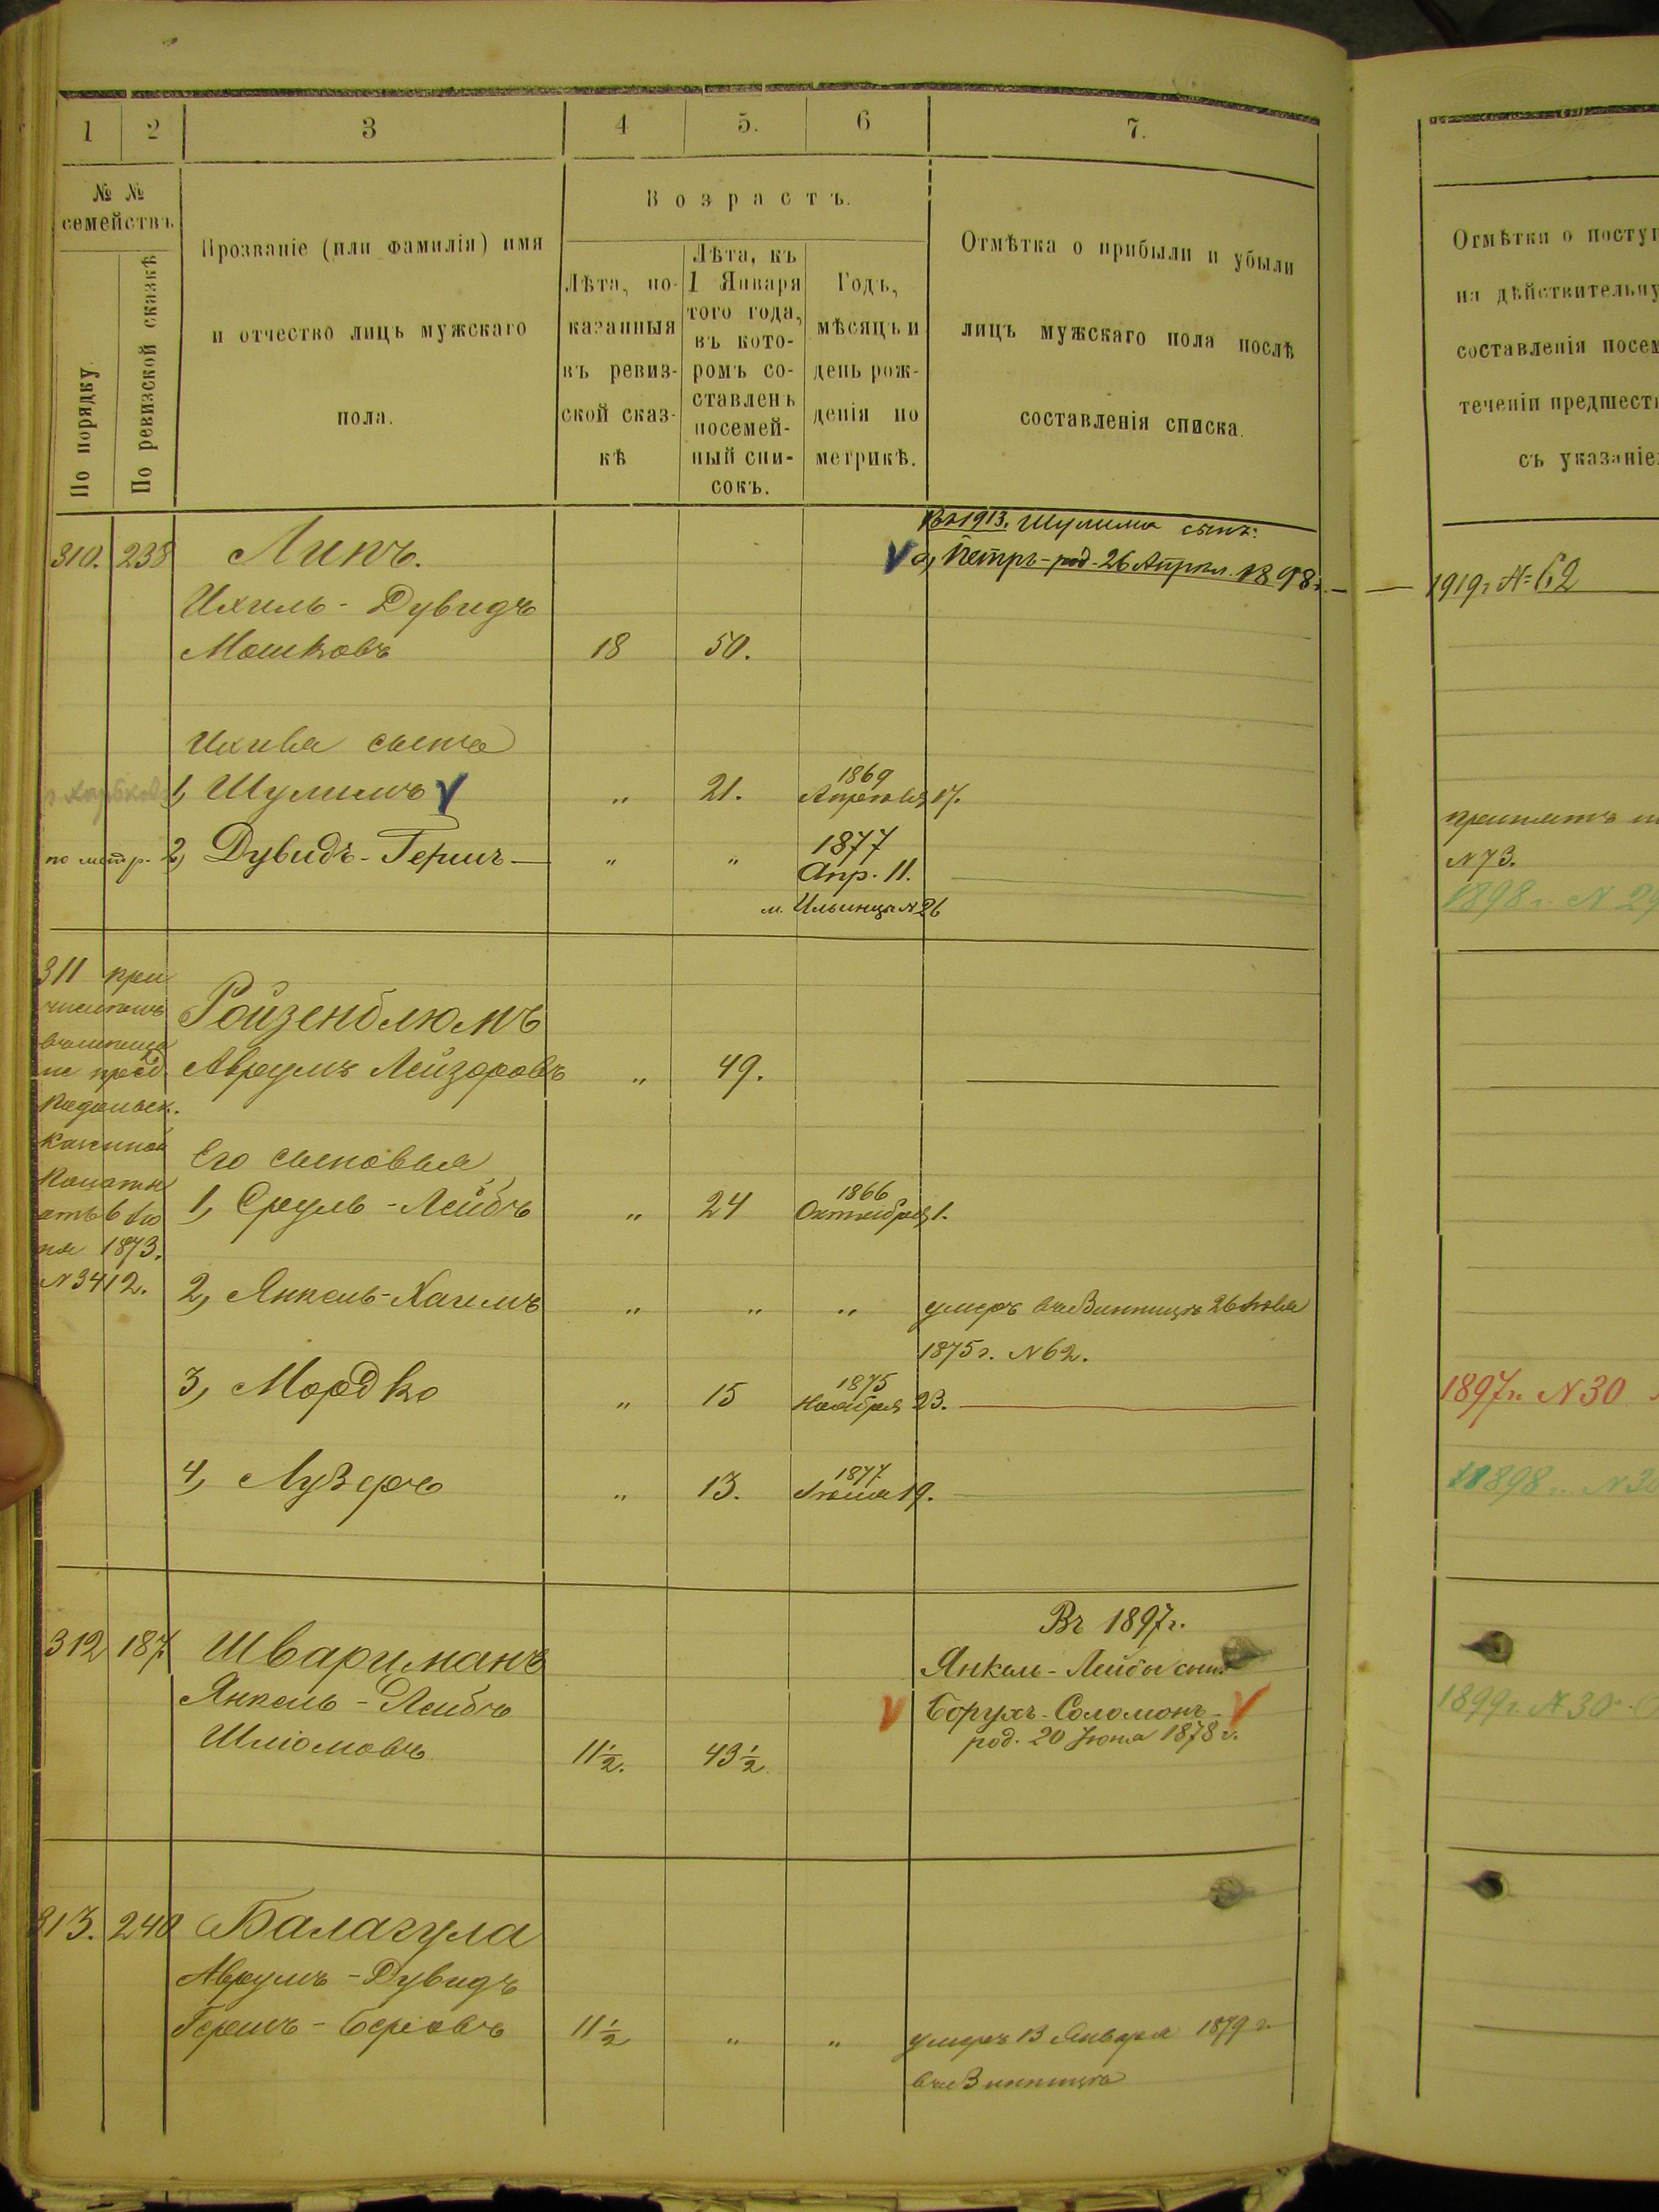 1 2 3 4 5. 6 7.
№ № семействъ
По порядку.
По ревизской сказкѣ
Прозваніе (или фамилія) имя
и отчество лицъ мужскаго
пола.
Возрастъ.
Лѣта, по-
казанныя
въ ревиз-
ской сказ-
кѣ
Лѣта, къ
1 Января
того года,
въ кото-
ромъ со-
ставленъ
посемей-
ный спи-
сокъ.
Годъ,
мѣсяцъ и
день рож-
денія по
метрикѣ.
Отмѣтка о прибыли и убыли
лицъ мужскаго пола послѣ
составленія списка.
Въ 1913. Шулима сынъ:
310. 238 Липъ. а, Петръ - род. 26 Апрѣл. 1898 г.
Ихиль - Дувидъ
Мошковъ 18 50.
Ихиля сыновья
1, Шулимъ „ 21. 1869 Апрѣля 17.
по метр. 2, Дувидъ - Гершъ „ „ 1877
Апр. 11.
м. Ильинцы № 26
311 при
численъ
Подольск.
Казенной
Палаты
отъ 6 Iю
ня 1873.
№ 3412.
Ройзенблюмъ
Аврумъ Лейзоровъ „ 49.
Его сыновья
1, Сруль - Лейбъ „ 24 1866 Октября 1.
2, Янкель - Хаимъ „ „ „ умеръ въ Винницѣ 26 Iюля
1875 г. № 62.
3, Мордко „ 15 1875 Ноября 23.
4, Лузеръ „ 13. 1877 19.
312 187. Шварцманъ
Янкель - Лейбъ
Шліомовъ 11½. 43½
Въ 1897 г.
Янкель - Лейбы сынъ
Борухъ - Соломонъ -
род. 20 Iюня 1878 г.
313. 240 Балагула
Аврумъ - Дувидъ
Гершъ - Беріовъ 11½ „ „ умеръ 13 Января 1879 г.
въ Винницѣ
Отмѣтки о поступ
на дѣйствительну
составленія посем
теченіи предшеств
съ указаніе
1919 г. № 62
принятъ
№ 73.
1898 г. № 29
1897 г. № 30
1898 г. № 30
1899 г. № 30